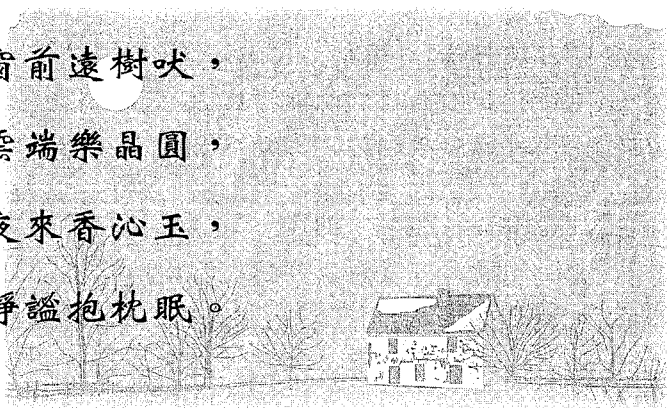 窗前遠樹吠，
雲端樂晶圓，
夜來香沁玉，
靜謐抱枕眠。